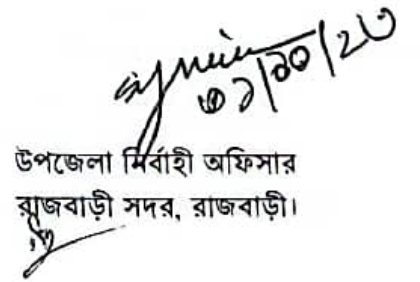 ৩১/১০/২৩
উপজেলা নির্বাহী অফিসার
রাজবাড়ী সদর, রাজবাড়ী।